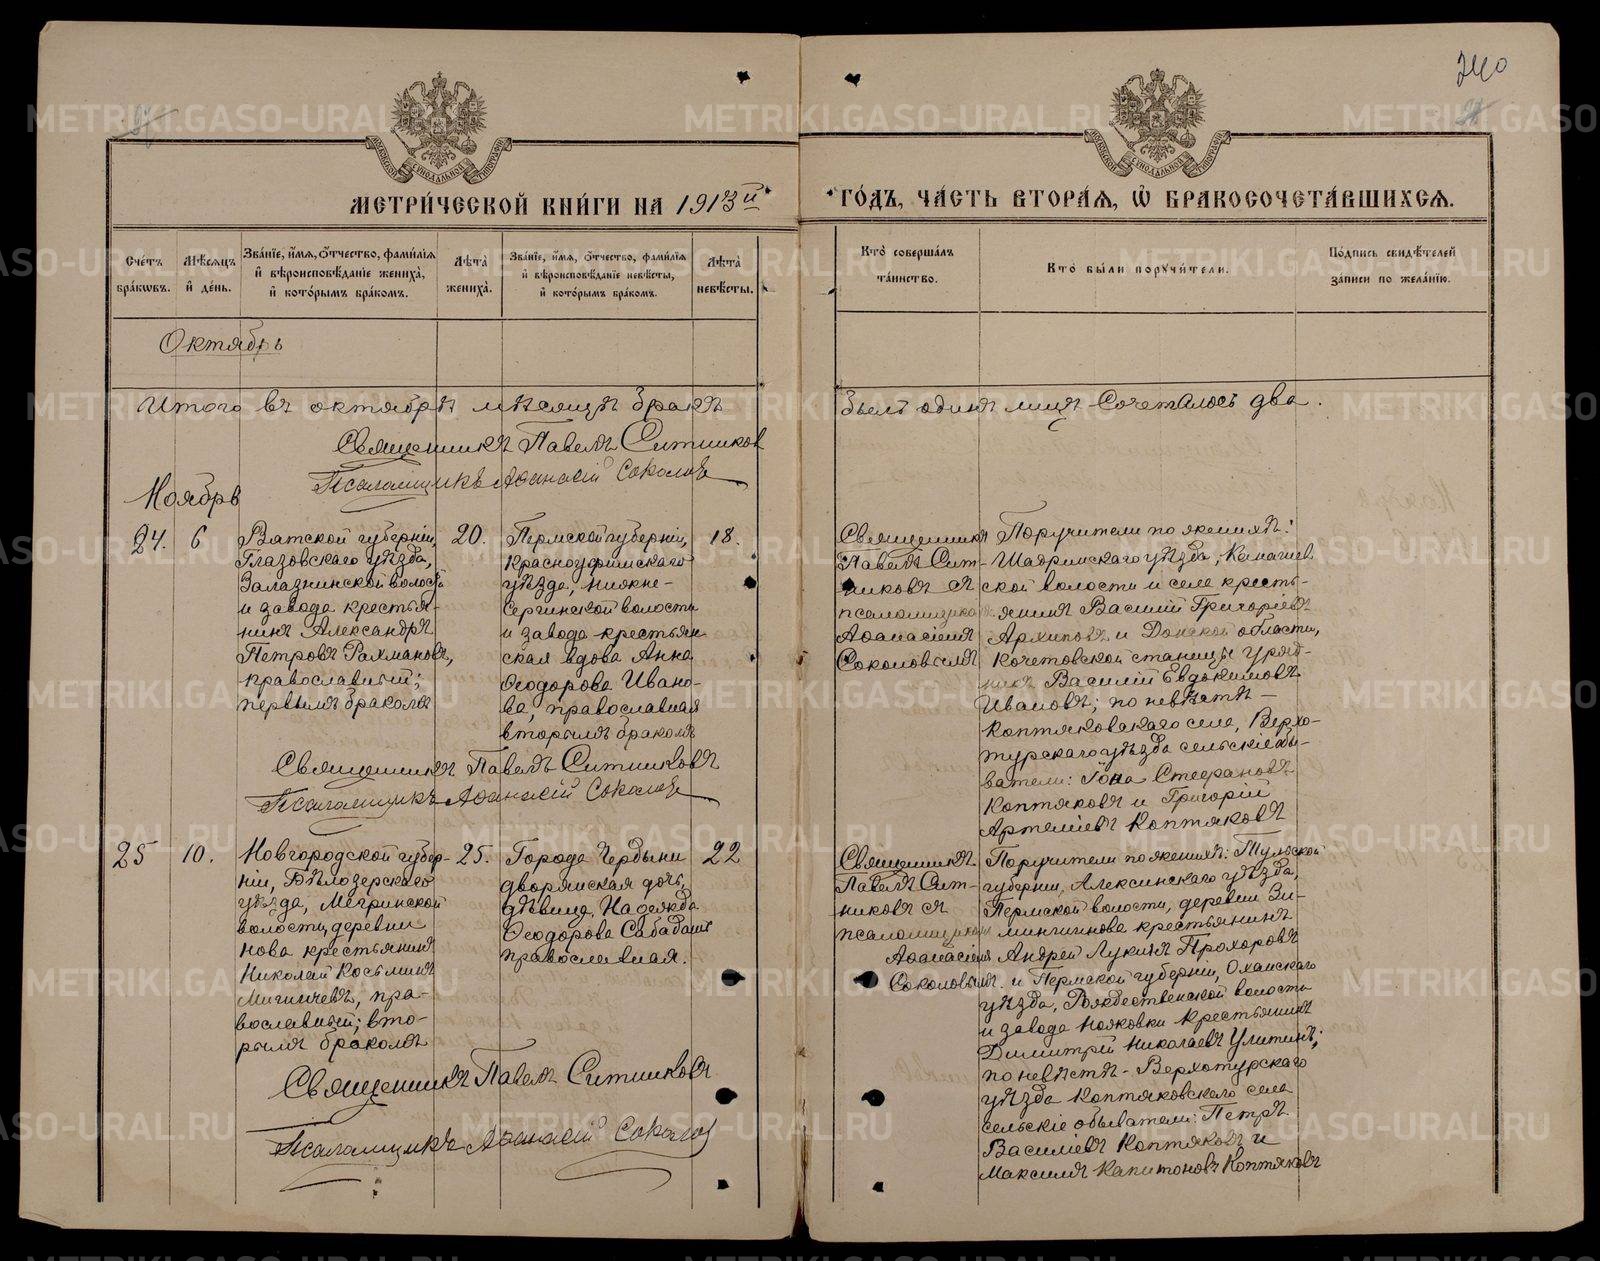 240
МЕТРИ́ЧЕСКОЙ КНИ́ГИ НА 1913й
ГО́ДЪ, ЧА́СТЬ ВТОРА́Я, Ѡ БРАКОСОЧЕТА́ВШИХСЯ.
МОСКОВСКОЙ СѴНОДАЛЬНОЙ ТИПОГРАФІИ
МОСКОВСКОЙ СѴНОДАЛЬНОЙ ТИПОГРАФІИ
Сче́тъ бра́кѡвъ.
Мѣ́сяцъ и҆ де́нь.
Зва́нїе, и҆́мя, ѻ҆́тчество, фами́лїя и҆ вѣроисповѣ́данїе жениха̀, и҆ кото́рымъ бра́комъ.
Лѣ́та жениха̀.
Зва́нїе, и҆́мя, ѻ҆́тчество, фами́лїя и҆ вѣроисповѣ́данїе невѣ́сты, и҆ кото́рымъ бра́комъ.
Лѣ́та невѣ́сты.
Кто̀ соверша́лъ та́инство.
Кто̀ бы́ли поручи́тели.
По́дпись свидѣ́телей за́писи по жела́нїю.
Октябрь
Итого въ октябрѣ мѣсяцѣ бракъ
былъ одинъ лицъ сочеталось два.
Священникъ Павелъ Ситников
Псаломщикъ Аѳанасій Соколовъ
Ноябрь
24.
6
Вятской губерніи,
Глазовскаго уѣзда,
Залазнинской волости
и завода крестья-
нинъ Александръ
Петровъ Рахмановъ,
православный;
первымъ бракомъ
20.
Пермской губерніи,
Красноуфимскаго
уѣзда, Нижне-
Сергинской волости
и завода крестьян
ская вдова Анна
Ѳеодорова Ивано-
ва, православная
вторымъ бракомъ
18.
Священникъ
Павелъ Сит-
никовъ съ
псаломщикомъ
Аѳанасіемъ
Соколовымъ
Поручители по женихѣ:
Шадринскаго уѣзда,
ской волости и села кресть-
янинъ Василій Григоріевъ
Архиповъ и Донской области,
Кочетовской станицы уряд-
никъ Василій Евдокимовъ
Ивановъ; по невѣстѣ —
Коптяковскаго села, Верхо-
турскаго уѣзда сельскіе обы-
ватели: Іона Стефановъ
Коптяковъ и Григорій
Артеміевъ Коптяковъ
Священникъ Павелъ Ситниковъ
Псаломщикъ Аѳанасій Соколовъ
25
10.
Новгородской губер-
ніи, Бѣлозерскаго
уѣзда, Мегринской
волости, деревни
Нова крестьянинъ
Николай Косьминъ
Мигичевъ, пра-
вославный; вто-
рымъ бракомъ
25.
Города Чердыни
дворянская дочь,
дѣвица, Надежда
Ѳеодорова Сабадашъ
православная.
22
Священникъ
Павелъ Сит-
никовъ съ
псаломщикомъ
Аѳанасіемъ
Соколовымъ.
Поручители по женихѣ: Тульской
губерніи, Алексинскаго уѣзда,
Пермской волости, деревни
крестьянинъ
Андрей Лукинъ Прохоровъ
и Пермской губерніи, Оханскаго
уѣзда, Рождественской волости
и завода Ножовки крестьянинъ
Димитрій Николаевъ Улитинъ;
по невѣстѣ - Верхотурскаго
уѣзда Коптяковскаго села
сельскіе обыватели: Петръ
Василіевъ Коптяковъ и
Максимъ Капитоновъ Коптяковъ
Священникъ Павелъ Ситниковъ
Псаломщикъ Аѳанасій Соколовъ
METRIKI.GASO-URAL.RU